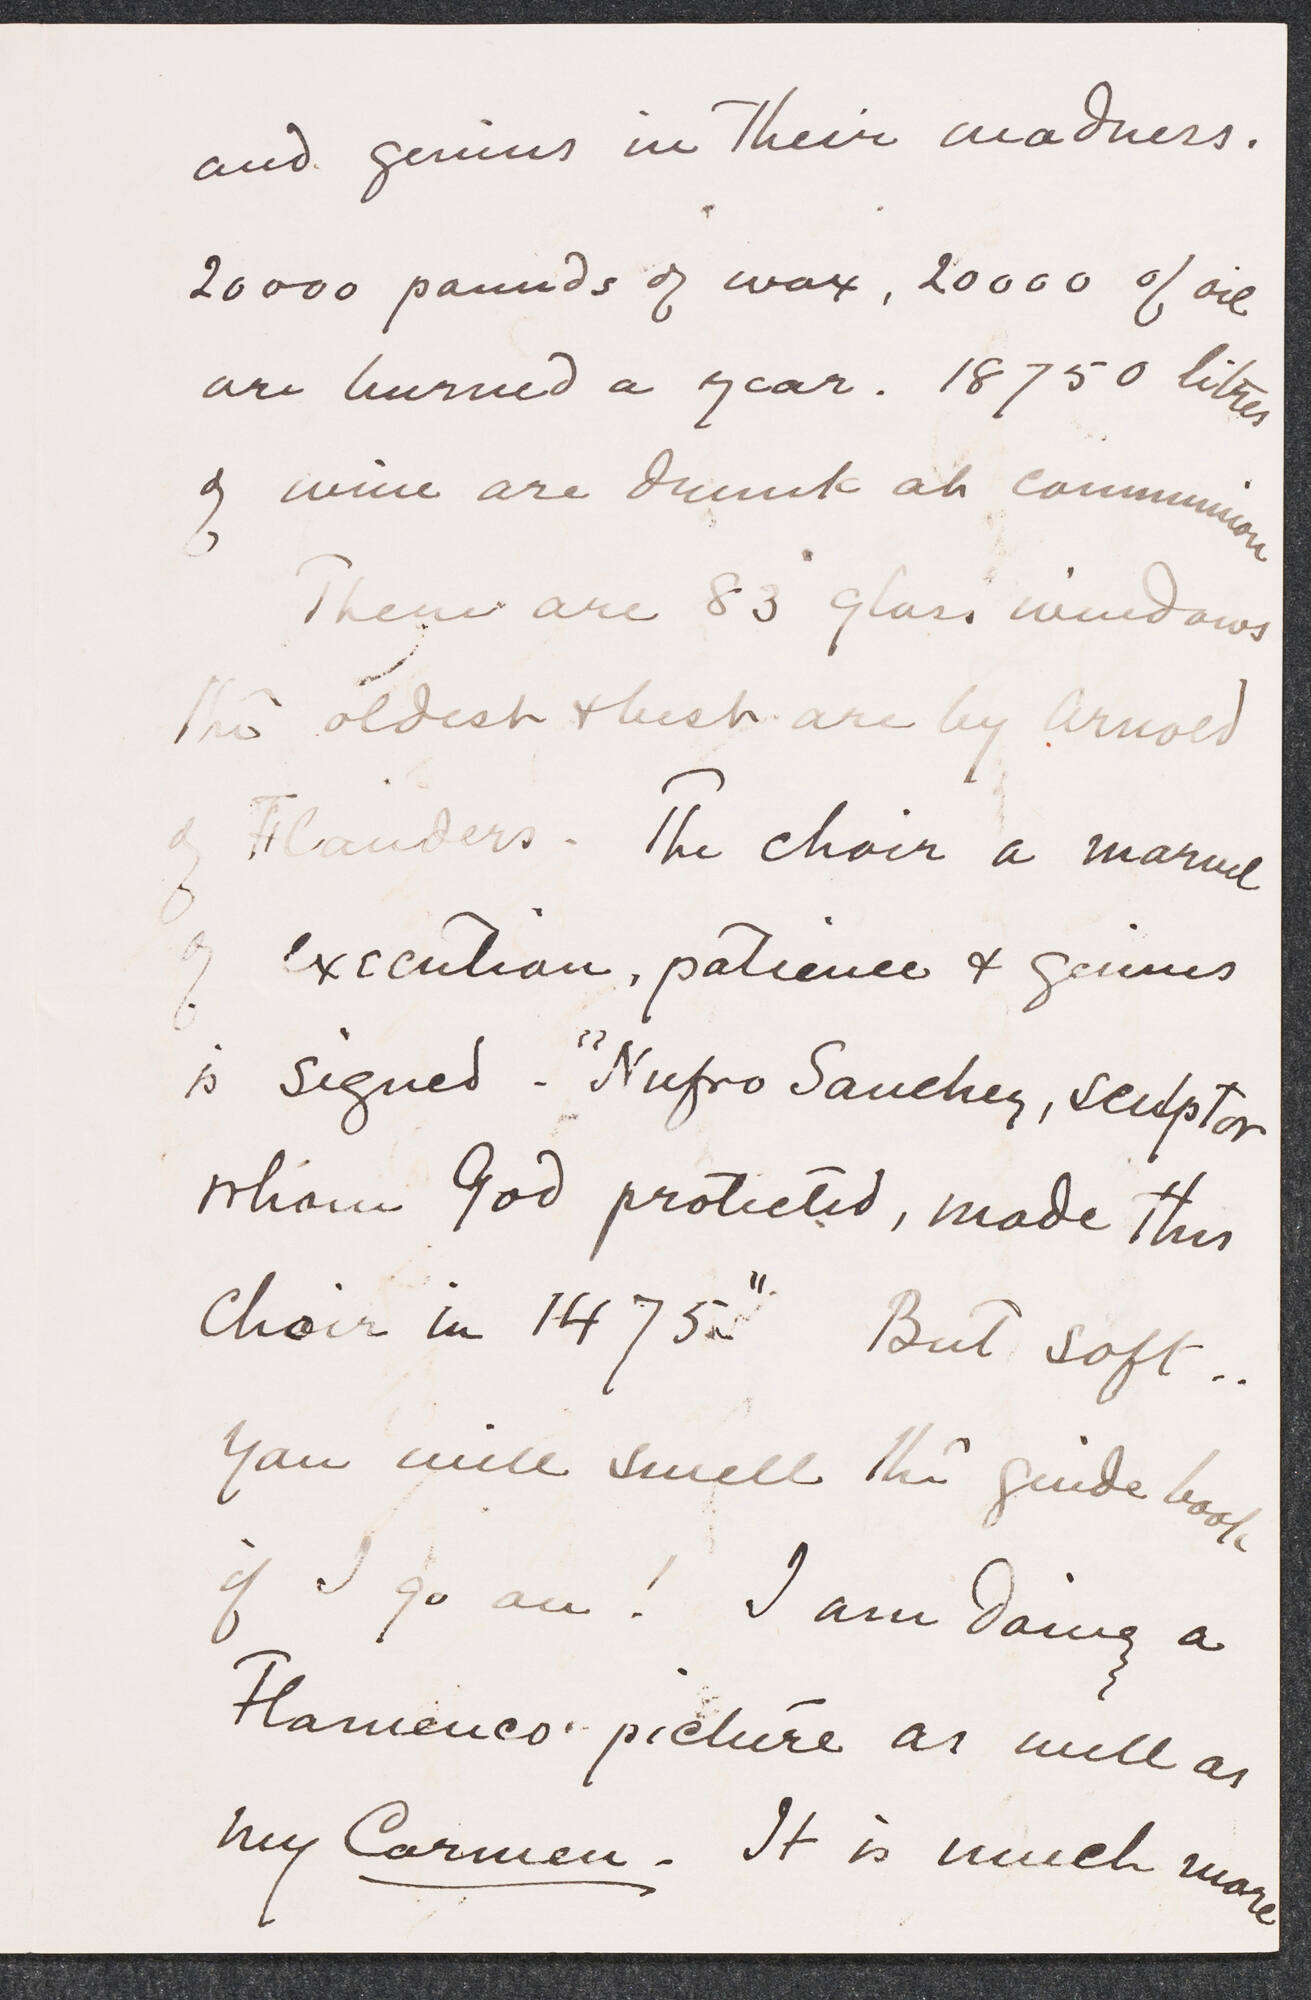 and genius in their madness.
20000 pounds of wax, 20000 of oil
are burned a year. 18750 litres
of wine are drunk at communion
There are 83 glass windows
the oldest & best are by Arnold
of Flanders. The choir a marvel
of execution, patience & genius
is signed - "Nufro Sanchez, sculptor
whom God protected, made this
choir in 1475" But soft ..
you will smell the guide book
if I go on! I am doing a
Flamenco picture as well as
my Carmen. It is much more